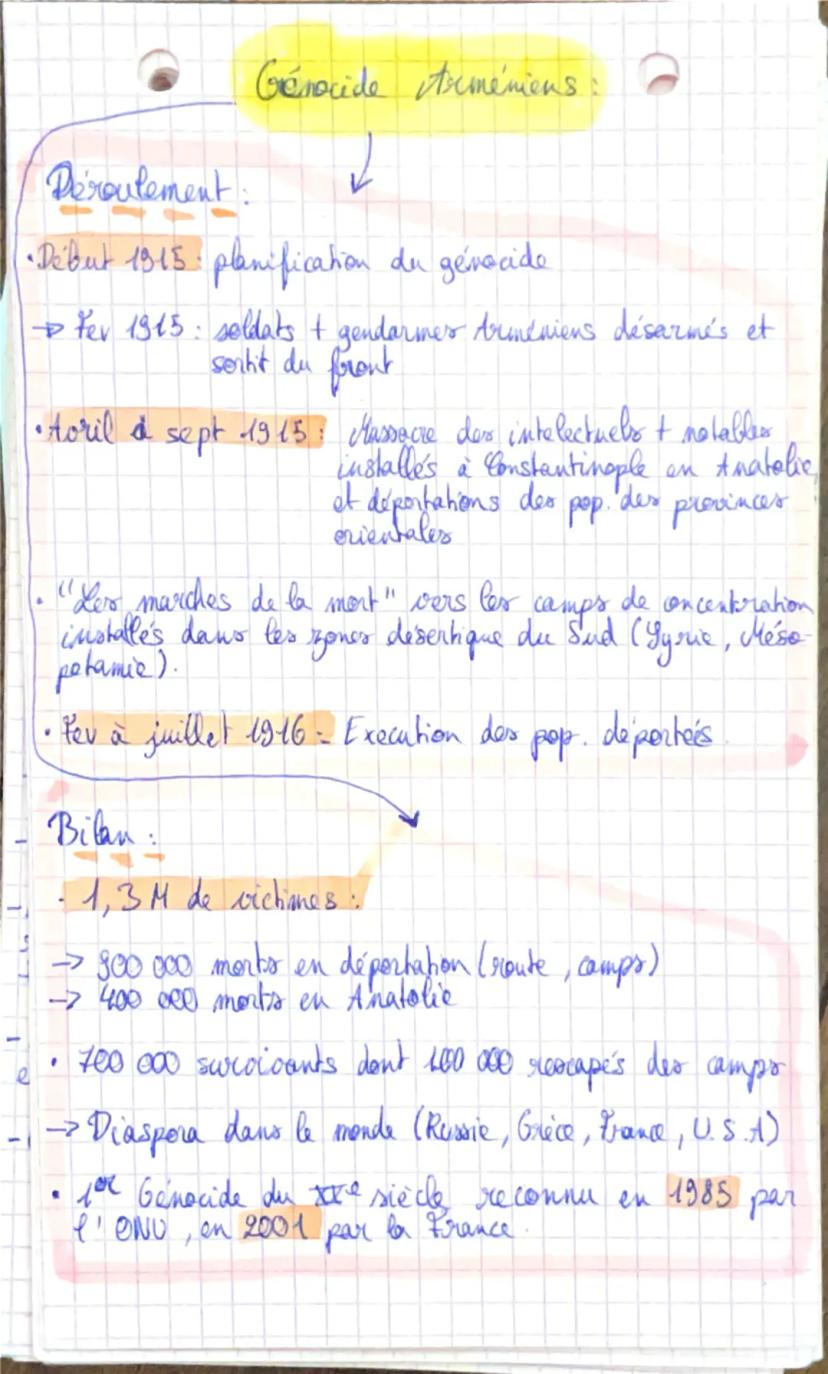 Génocide Arméniens :
Déroulement :
• Début 1915 : planification du génocide
→ Fev 1915 : soldats + gendarmes Arméniens désarmés et
sortit du front
• Avril à sept 1915 : Massacre des intelectuels + notables
installés à Constantinople en Anatolie,
et déportations des pop. des provinces
orientales
• "Les marches de la mort" vers les camps de concentration
installés dans les zones désertique du Sud (Syrie, Méso-
potamie).
• Fev à juillet 1916 : Execution des pop. déportées.
Bilan :
- 1,3 M de victimes :
→ 900 000 morts en déportation (route, camps)
→ 400 000 morts en Anatolie
• 700 000 survivants dont 100 000 rescapés des camps
→ Diaspora dans le monde (Russie, Grèce, France, U.S.A)
• 1er Génocide du XXe siècle reconnu en 1985 par
l'ONU, en 2001 par la France.